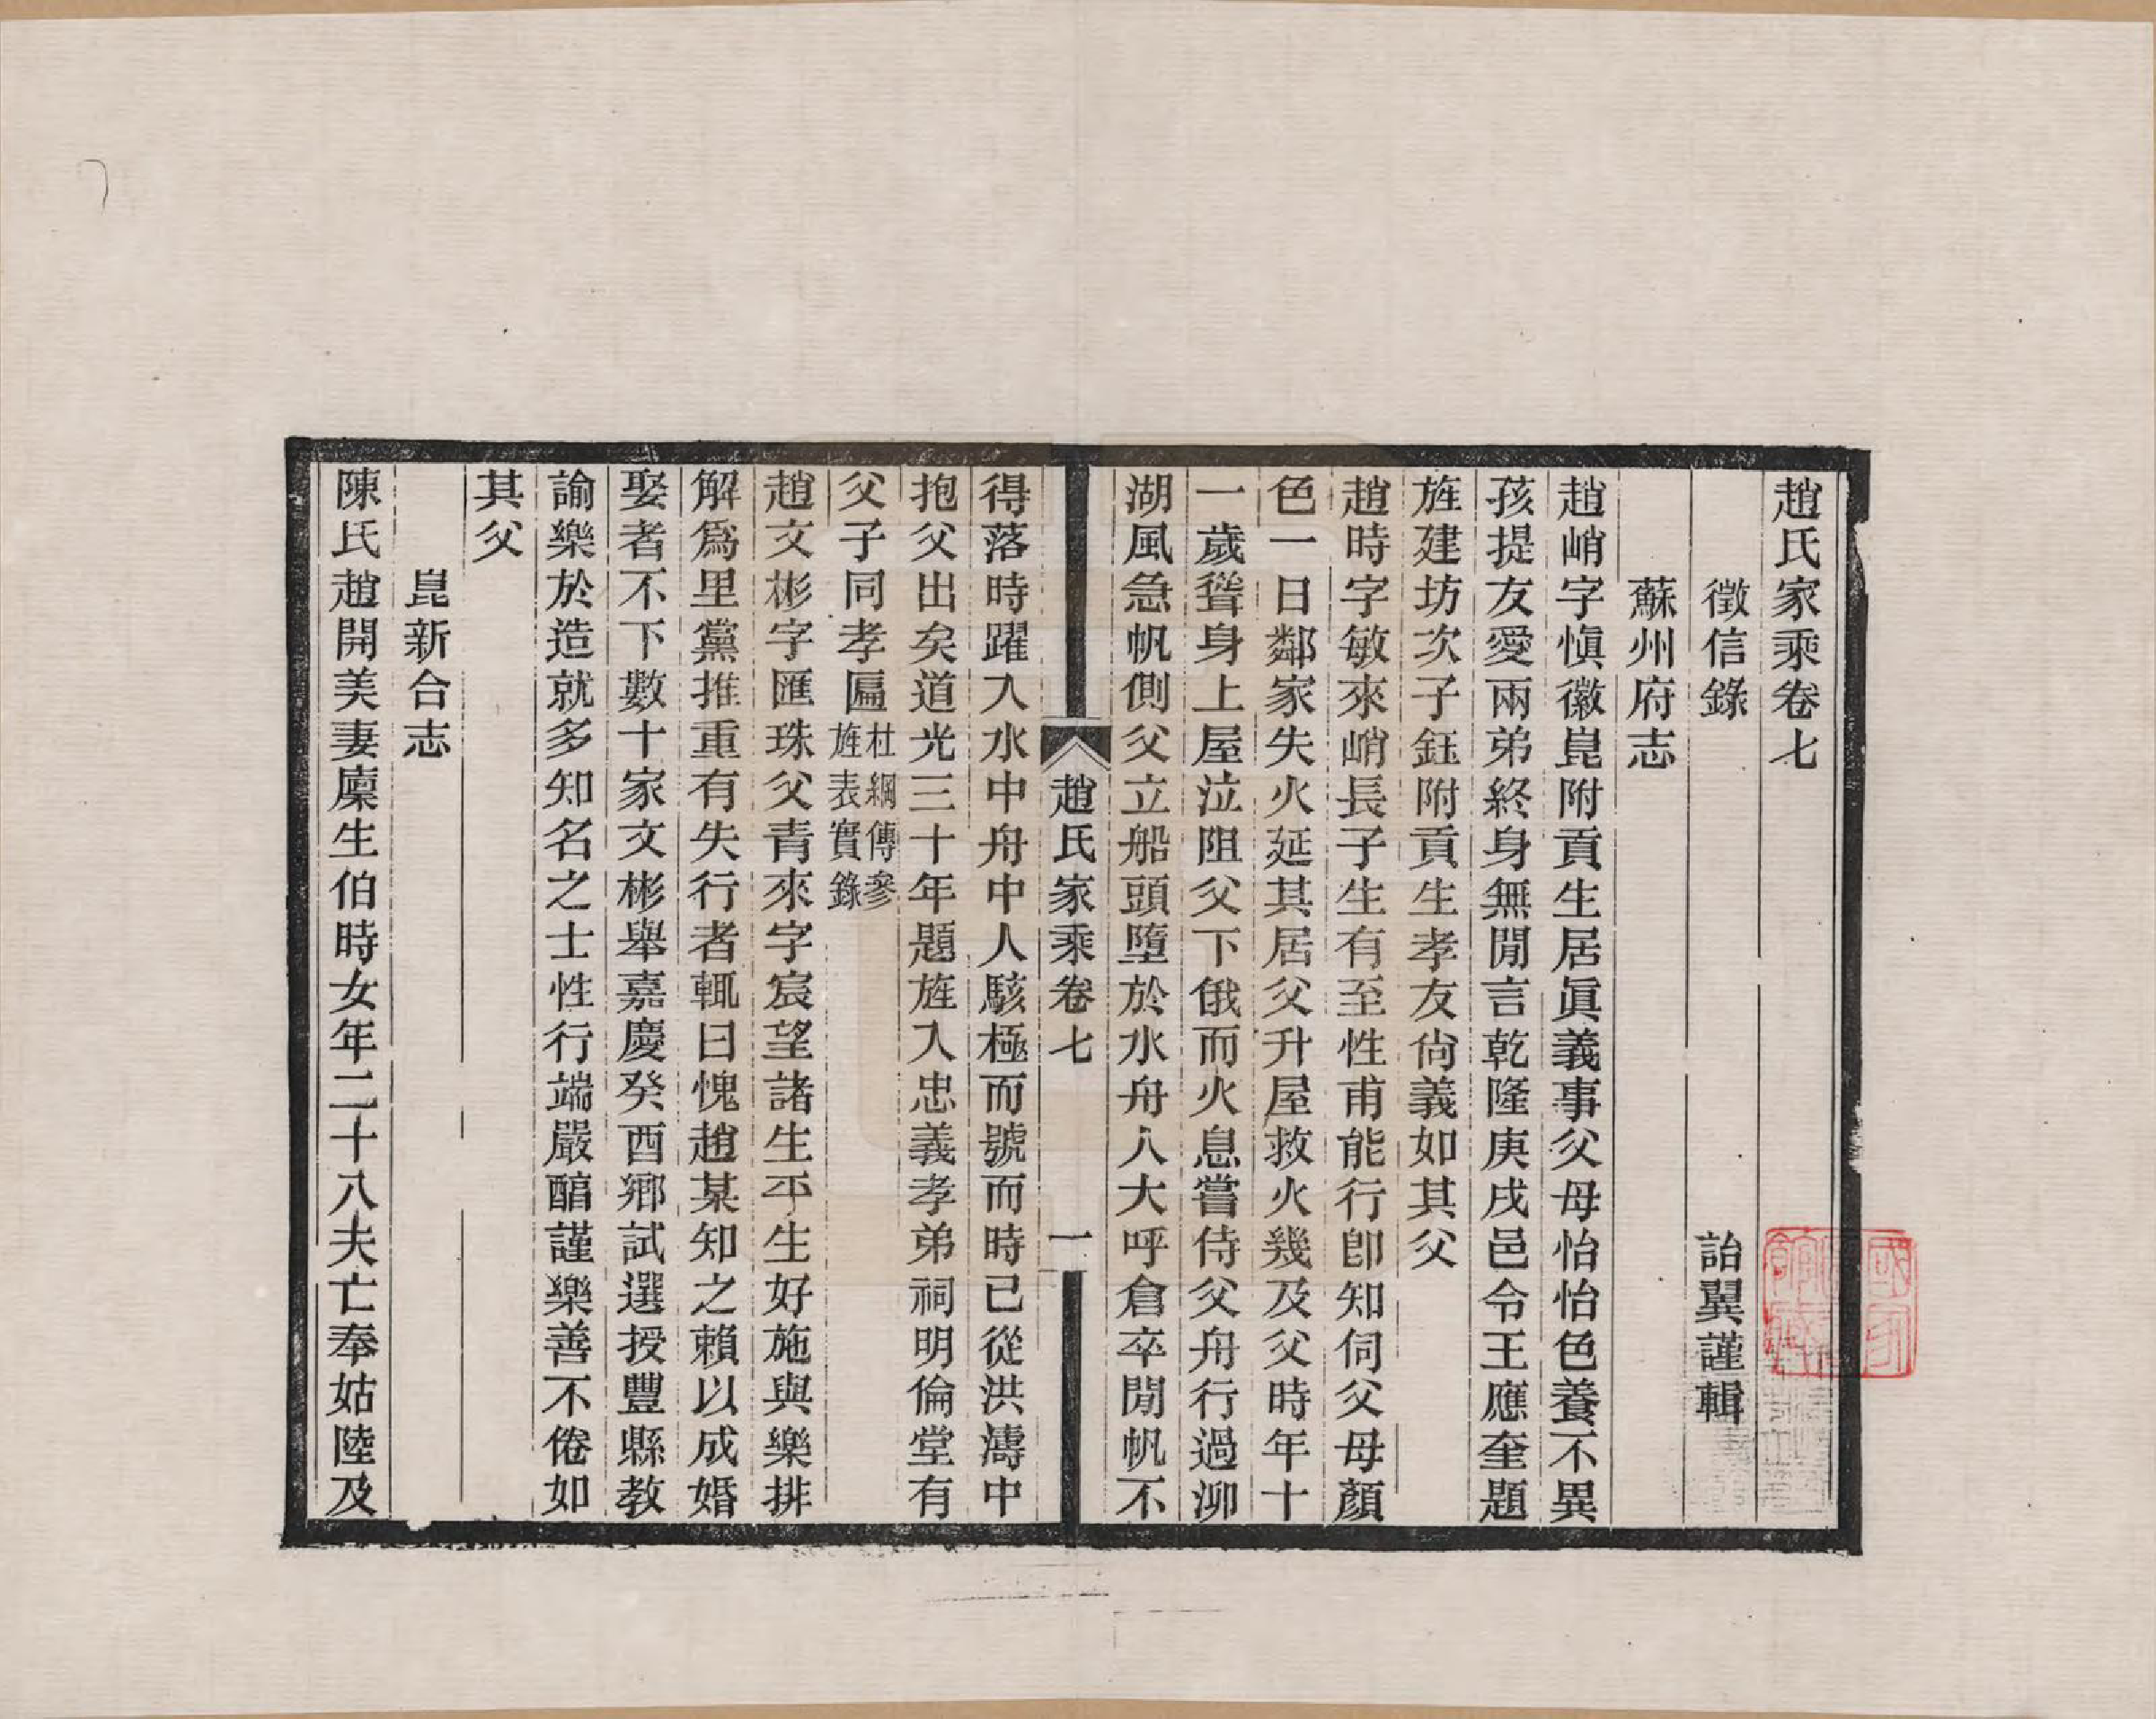 趙氏家乘卷七
徵信錄
詒翼謹輯
蘇州府志
趙峭字愼徽崑附貢生居眞義事父母怡怡色養不異
孩提友愛兩弟終身無閒言乾隆庚戌邑令王應奎題
旌建坊次子鈺附貢生孝友尙義如其父
趙時字敏來峭長子生有至性甫能行卽知伺父母顏
色一日鄰家失火延其居父升屋救火幾及父時年十
一歲聳身上屋泣阻父下俄而火息嘗侍父舟行過泖
湖風急帆側父立船頭墮於水舟人大呼倉卒閒帆不
趙氏家乘卷七
一
得落時躍入水中舟中人駭極而號而時已從洪濤中
抱父出矣道光三十年題旌入忠義孝弟祠明倫堂有
父子同孝匾杜綱傳參
旌表實錄
趙文彬字匯珠父靑來字宸望諸生平生好施與樂排
解爲里黨推重有失行者輒曰愧趙某知之賴以成婚
娶者不下數十家文彬舉嘉慶癸酉鄉試選授豐縣教
諭樂於造就多知名之士性行端嚴醕謹樂善不倦如
其父
崑新合志
陳氏趙開美妻廩生伯時女年二十八夫亡奉姑陸及